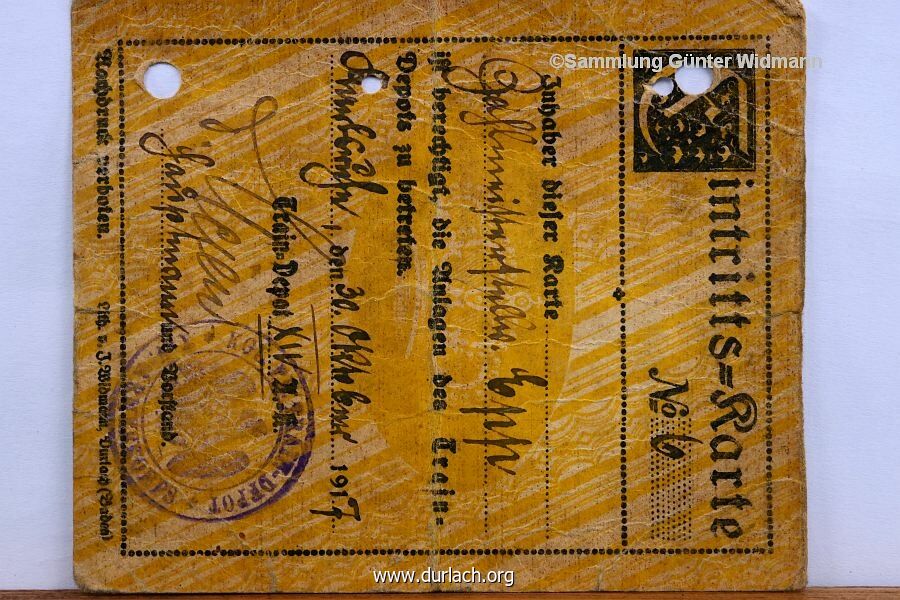 ©Sammlung Günter Widmann
Eintritts=Karte
№ 6
Inhaber dieser Karte
Epp
ist berechtigt, die Anlagen des Train-
Depots zu betreten.
den 30. Oktober 1917
Train-Depot XIV. A.K.
Hauptmann und Vorstand.
DEPOT
Nachdruck verboten.
Durlach (Baden)
www.durlach.org